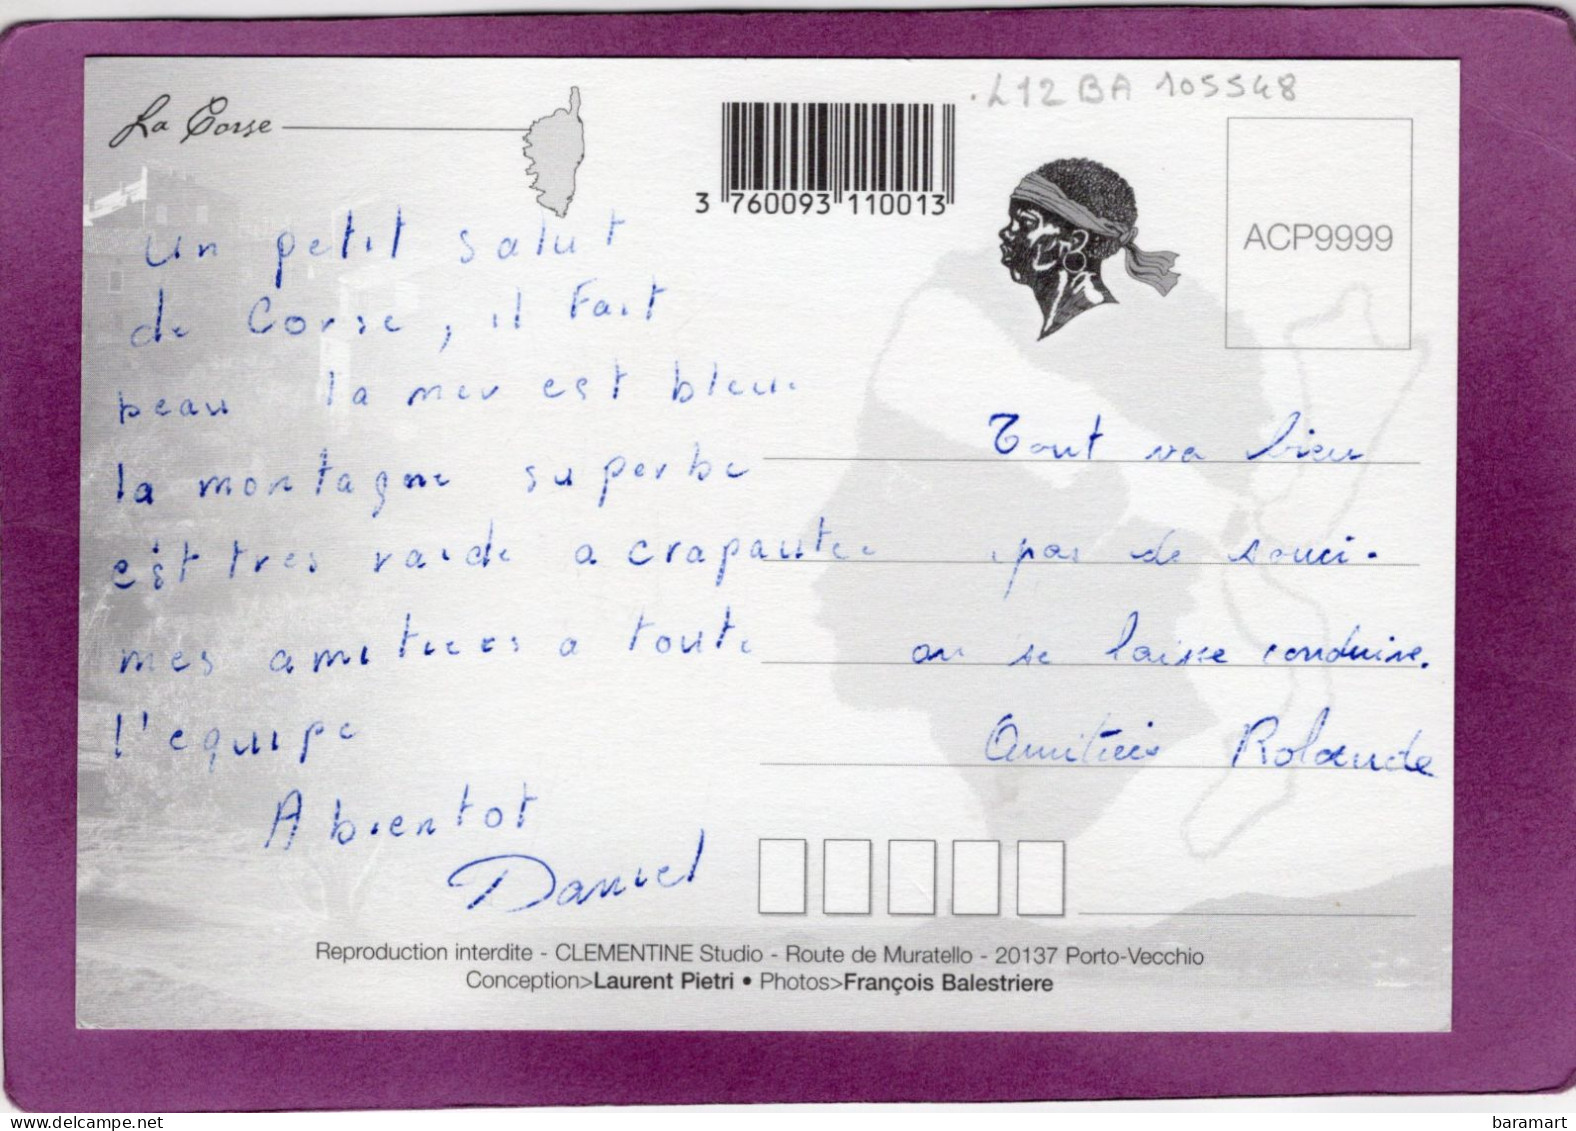 La Corse
.L12BA 105548
3 760093 110013
ACP9999
un petit salut
de Corse, il Fait
beau la mer est bleue
la montagne superbe
c'est tres raide a crapauter
mes amitiees a toute
l'equipe
A bientot
Daniel
Tout va bien
pas de souci.
on se laisse conduire.
Amitiés Rolande
Reproduction interdite - CLEMENTINE Studio - Route de Muratello - 20137 Porto-Vecchio
Conception>Laurent Pietri • Photos>François Balestriere
baramart